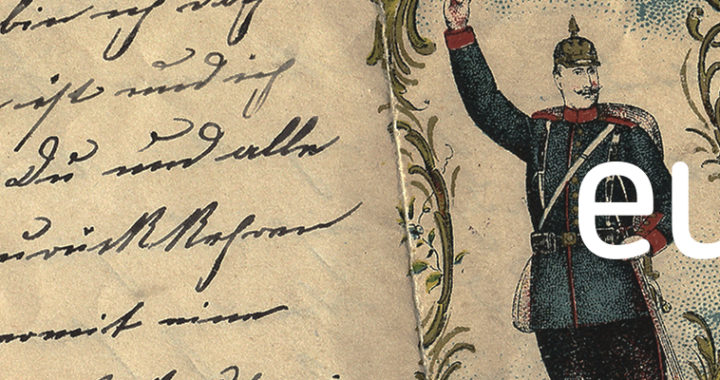 bin ich doch
ist und ich
Du und alle
zurückkehren
womit eine
eu